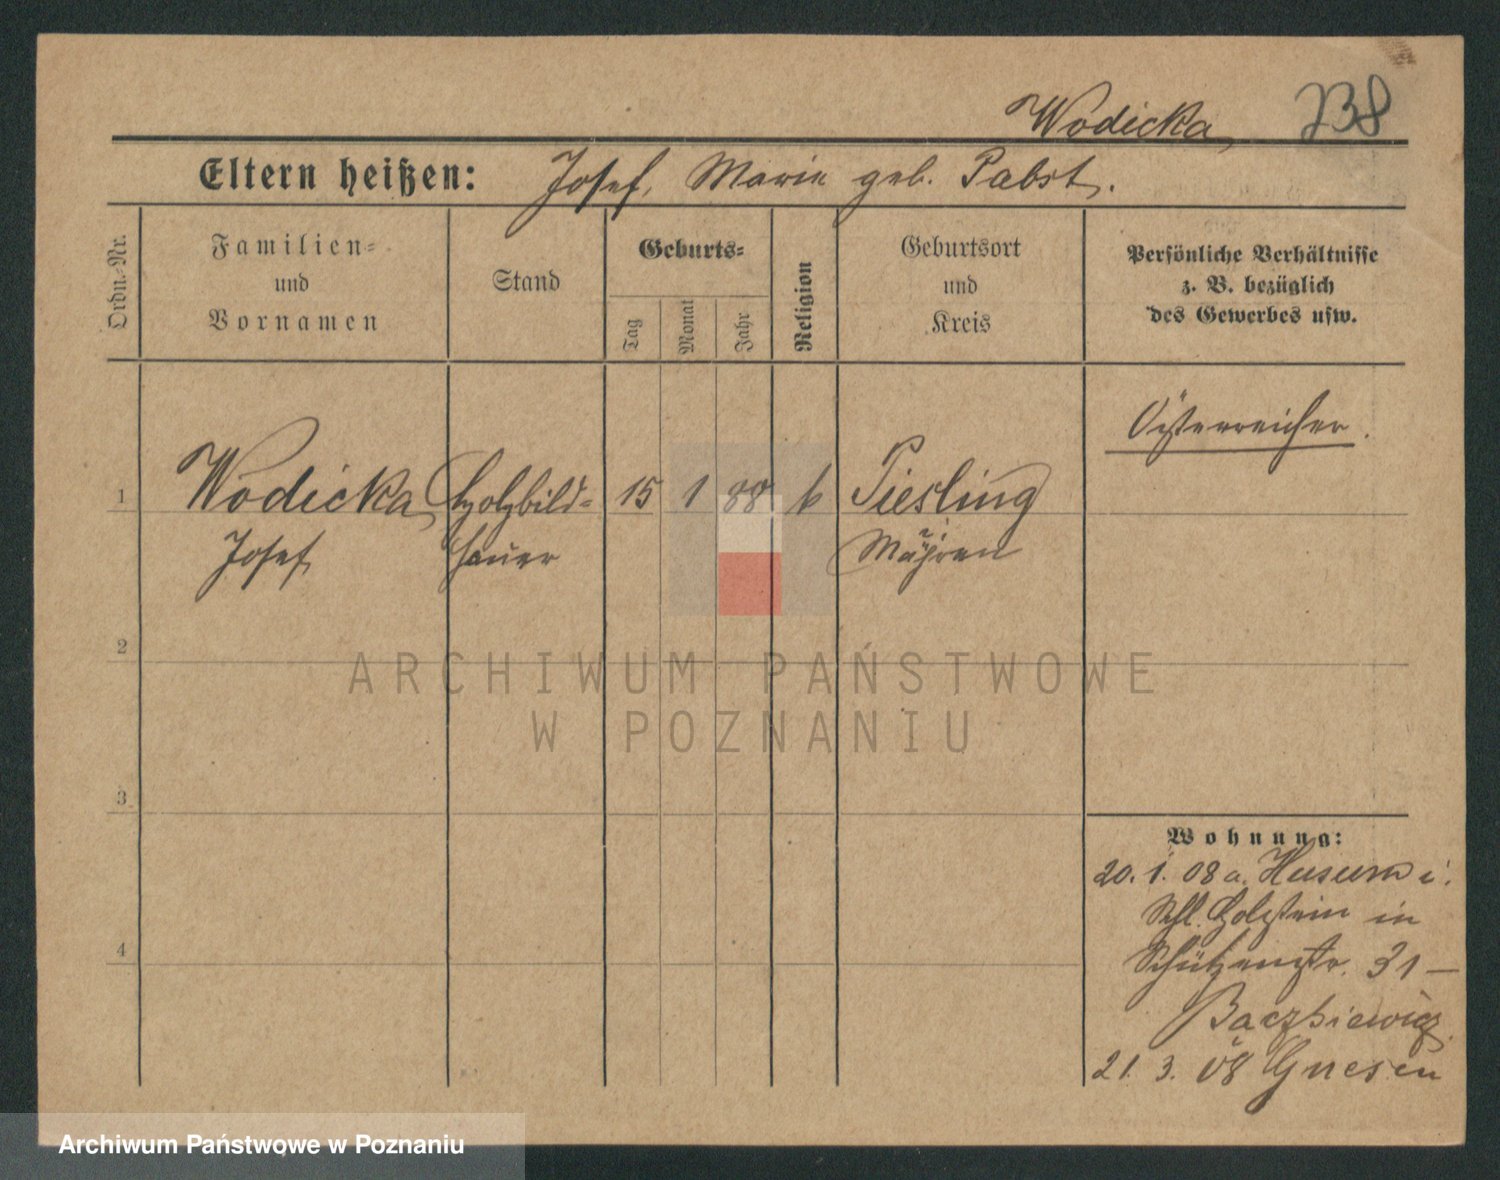 Wodicka, 238
Eltern heißen: Josef, Marie geb. Pabst.
Ordn.-Nr.
Familien-
und
Vornamen
Stand
Geburts-
Tag
Monat
Jahr
Religion
Geburtsort
und
Kreis
Persönliche Verhältnisse
z. B. bezüglich
des Gewerbes usw.
Österreicher.
1 Wodicka, Holzbild- 15 1 88 k Piesling
Josef hauer Mähren
2
ARCHIWUM PAŃSTWOWE
W POZNANIU
3
Wohnung:
20. 1. 08 a. Husum i.
Schl. Holstein in
Schützenstr. 31 –
Baczkiewicz
4
21. 3. 08 Gnesen
Archiwum Państwowe w Poznaniu